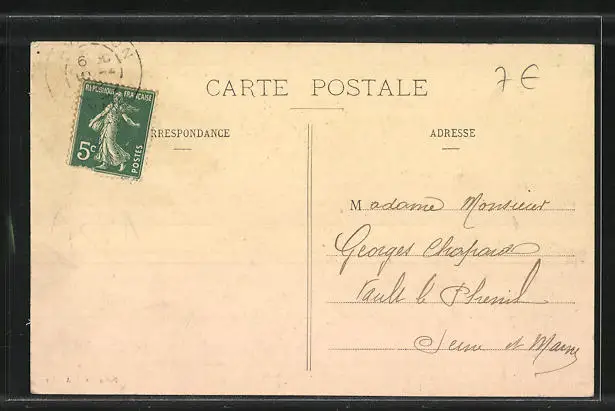 CARTE POSTALE
7 €
RÉPUBLIQUE FRANÇAISE
5c
POSTES
RRESPONDANCE
ADRESSE
Madame Monsieur
Georges
le
Seine et Marne